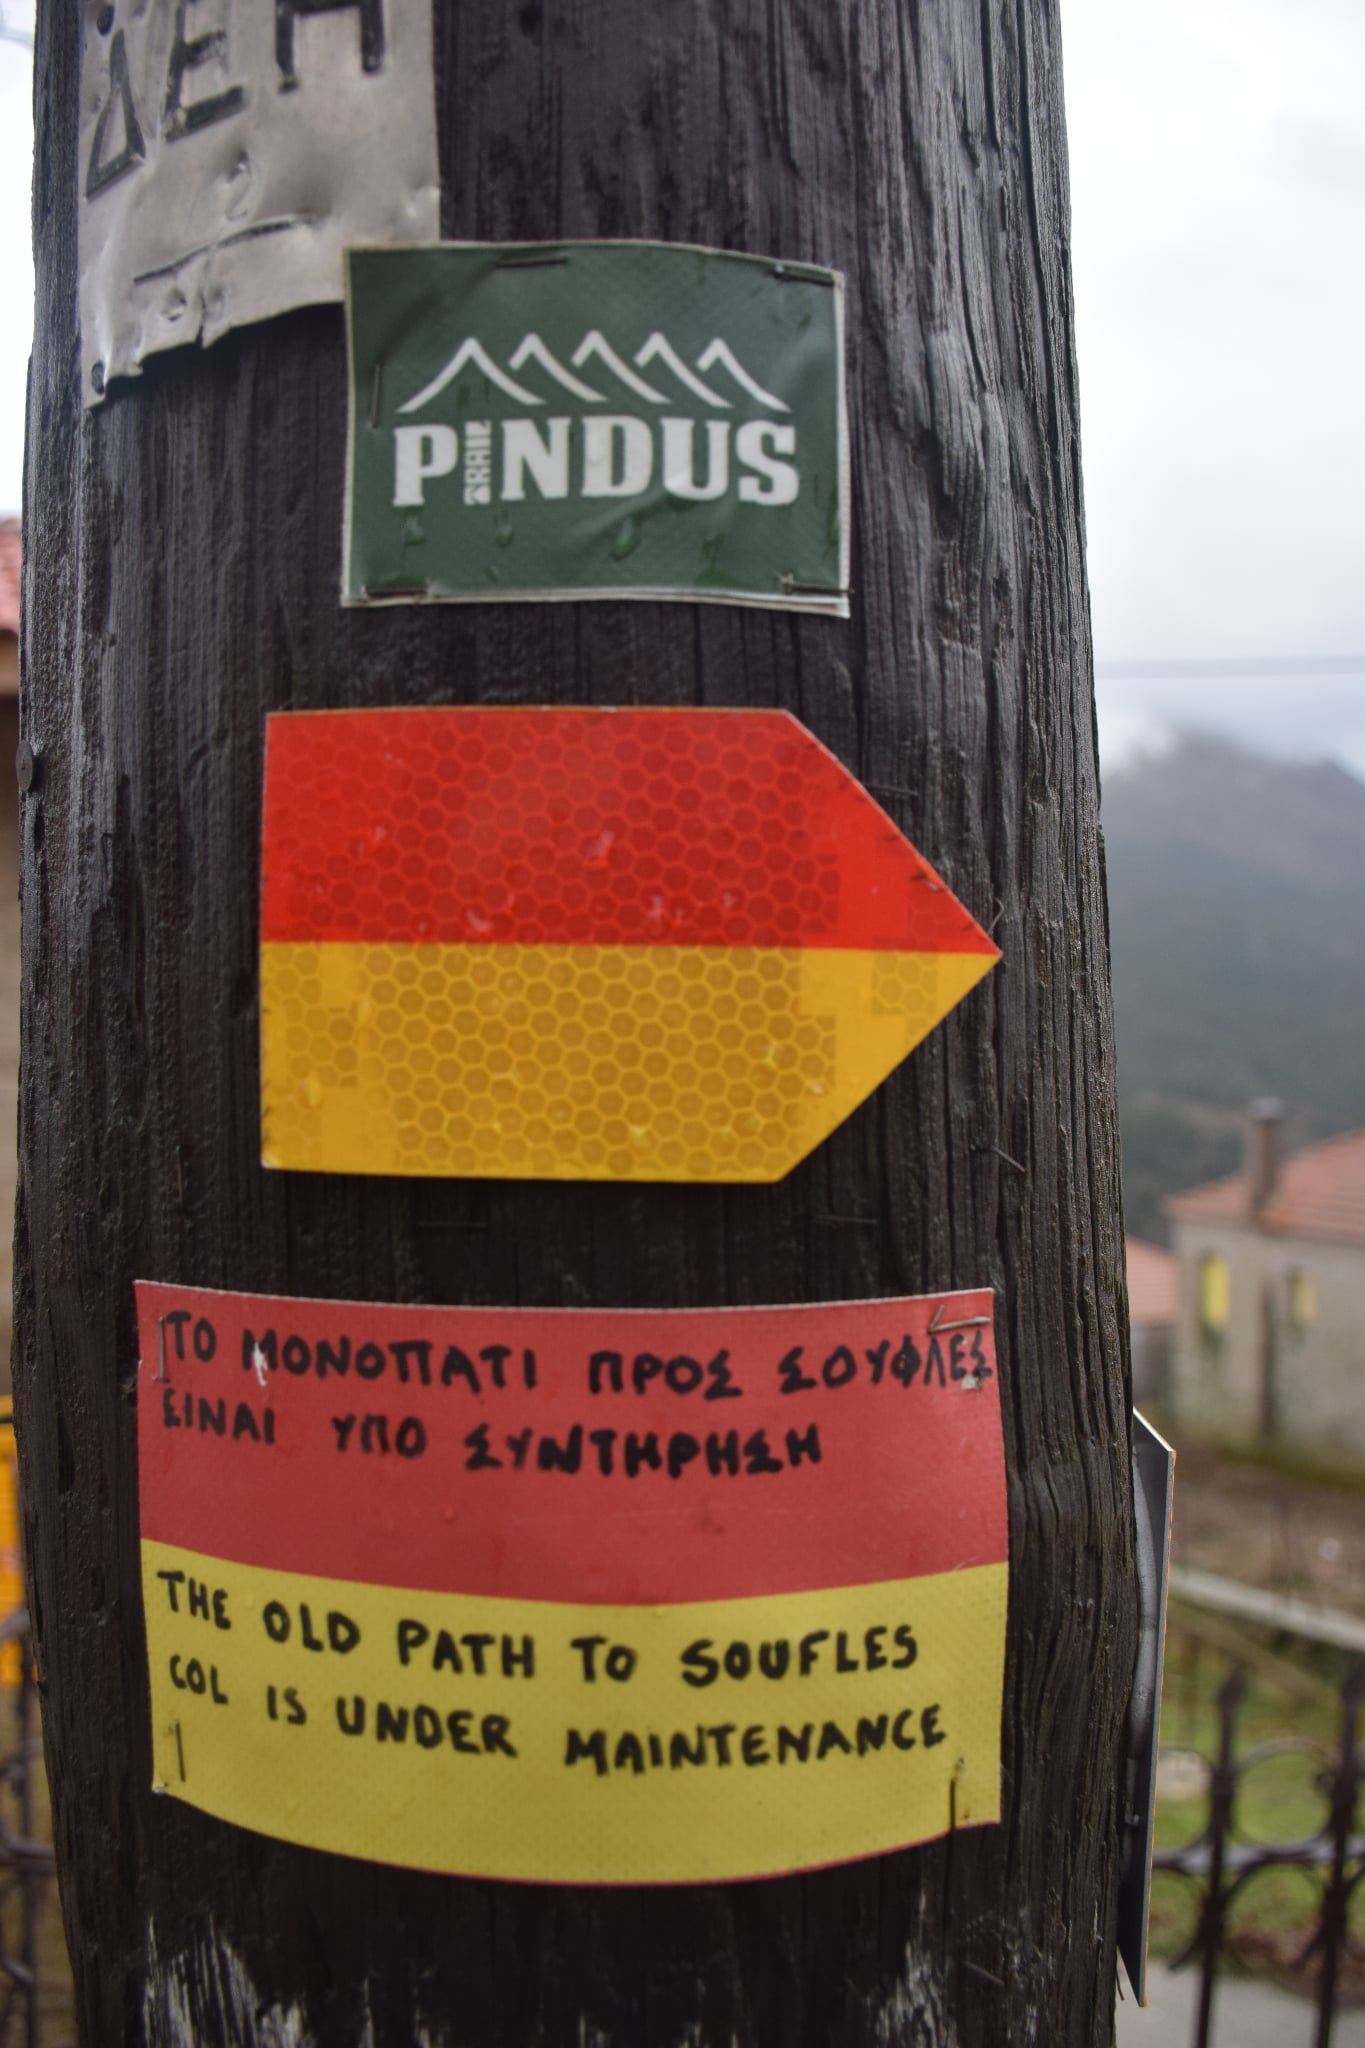 ΔΕΗ
PINDUS
TRAIL
ΤΟ ΜΟΝΟΠΑΤΙ ΠΡΟΣ ΣΟΥΦΛΕΣ
ΕΙΝΑΙ ΥΠΟ ΣΥΝΤΗΡΗΣΗ
THE OLD PATH TO SOUFLES
COL IS UNDER MAINTENANCE